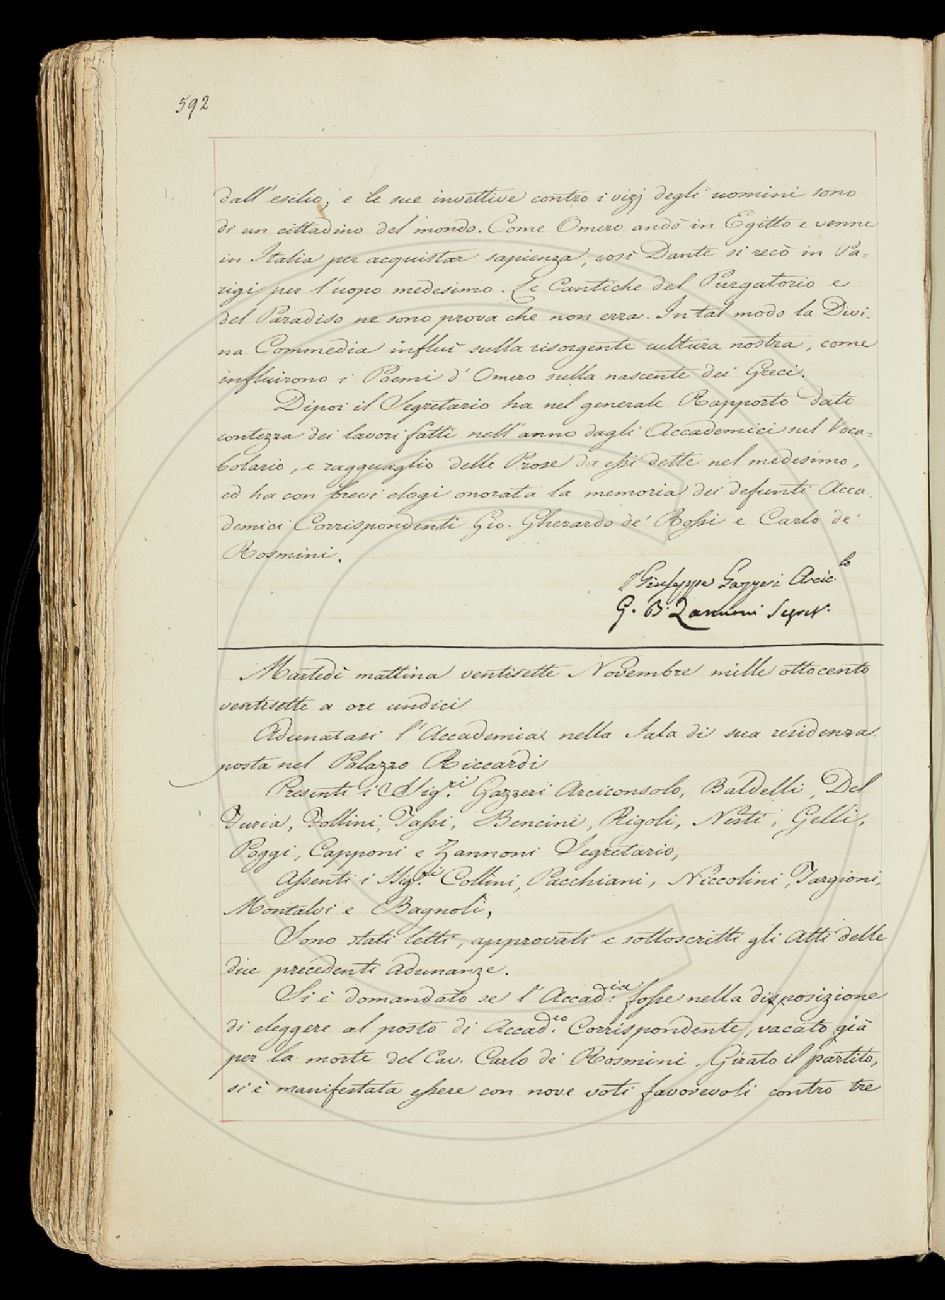 592
dall'esilio; e le sue invettive contro i vizj degli uomini sono
di un cittadino del mondo. Come Omero andò in Egitto e venne
in Italia per acquistar sapienza, così Dante si recò in Pa-
rigi per l'uopo medesimo. Le Cantiche del Purgatorio e
del Paradiso ne sono prova che non erra. In tal modo la Divi-
na Commedia influì sulla risorgente cultura nostra, come
influirono i Poemi d'Omero sulla nascente dei Greci.
Dipoi il Segretario ha nel generale Rapporto dato
contezza dei lavori fatti nell'anno dagli Accademici sul Voca-
bolario, e ragguaglio delle Prose da essi dette nel medesimo,
ed ha con brevi elogi onorata la memoria dei defunti Acca
demici Corrispondenti Gio. Gherardo de' Rossi e Carlo de'
Rosmini.
Giuseppe Gazzeri Arcic.lo
G. B. Zannoni Segret.
Martedì mattina ventisette Novembre mille ottocento
ventisette a ore undici
Adunatasi l'Accademia nella Sala di sua residenza
posta nel Palazzo Riccardi
Presenti i Sig.ri Gazzeri Arciconsolo, Baldelli, Del
Furia, Follini, Tassi, Bencini, Rigoli, Nesti, Gelli,
Poggi, Capponi e Zannoni Segretario,
Assenti i Sig.ri Collini, Pacchiani, Niccolini, Targioni,
Montalvi e Bagnoli,
Sono stati letti, approvati e sottoscritti gli Atti delle
due precedenti Adunanze.
Si è domandato se l'Accad.ia fosse nella disposizione
di eleggere al posto di Accad.co Corrispondente, vacato già
per la morte del Cav. Carlo de' Rosmini. Girato il partito,
si è manifestata essere con nove voti favorevoli contro tre